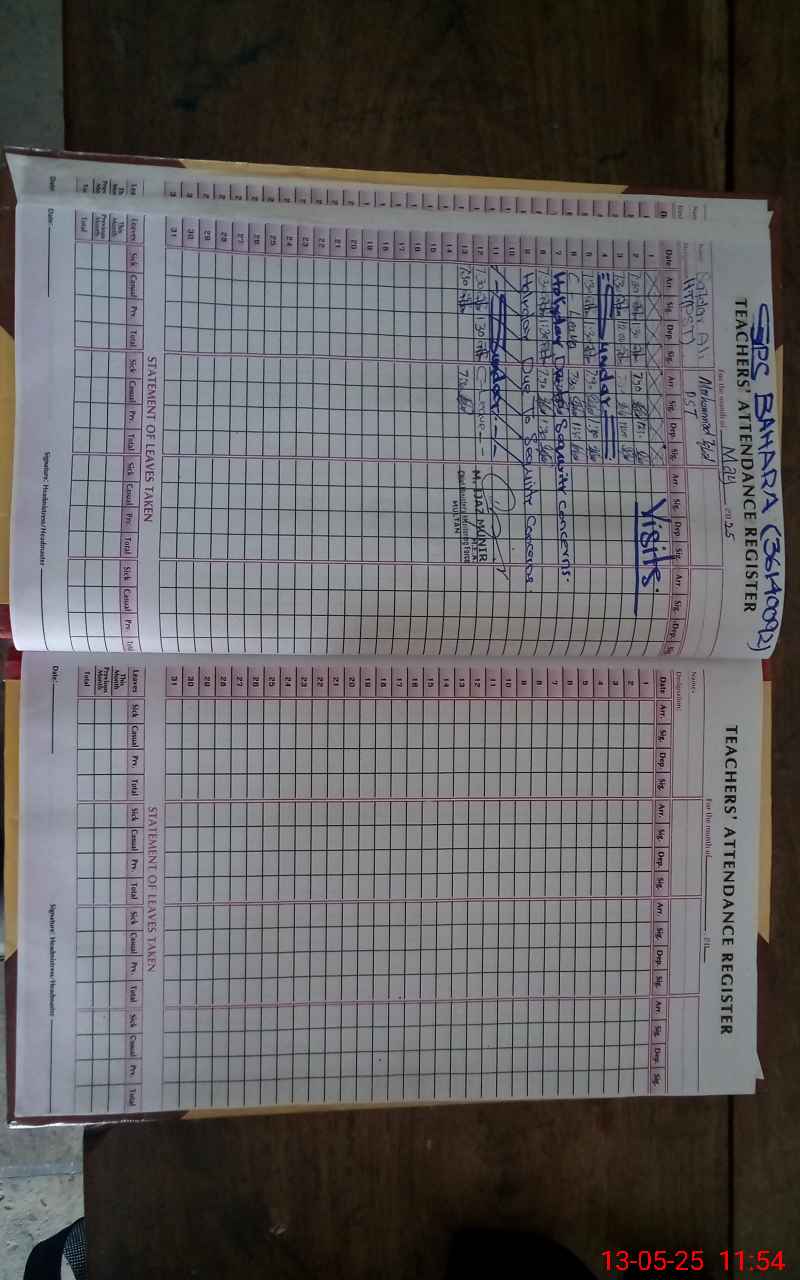 GPS BAHARA (36140092)
TEACHERS' ATTENDANCE REGISTER
For the month of May 2025
Name Safdar Ali Muhammad
Designation PST
Date Arr. Sig. Dep. Sig. Arr. Sig. Dep. Sig. Arr. Sig. Dep. Sig. Arr. Sig. Dep. Sig.
1
Visits.
2 7:30 1:30 7:30
3 7:30 12:00
4 Sunday
5 7:30 1:30 7:30 1:30
6 C Leave 7:30 1:30
7 Holiday Due to Security concerns.
8 7:30 1:30 7:30 1:30
9 Holiday Due To Security Concerns.
10
11 Sunday
12 7:30 1:30 C Leave
13 7:30 7:30
MUNIR
M.E.A
MULTAN
14
15
16
17
18
19
20
21
22
23
24
25
26
27
28
29
30
31
STATEMENT OF LEAVES TAKEN
Leaves Sick Casual Prv. Total Sick Casual Prv. Total Sick Casual Prv. Total Sick Casual Prv.
This Month
Previous Month
Total
Date: Signature: Headmistress/Headmaster
TEACHERS' ATTENDANCE REGISTER
For the month of
Name:
Designation:
Date Arr. Sig. Dep. Sig. Arr. Sig. Dep. Sig. Arr. Sig. Dep. Sig. Arr. Sig. Dep. Sig.
1
2
3
4
5
6
7
8
9
10
11
12
13
14
15
16
17
18
19
20
21
22
23
24
25
26
27
28
29
30
31
STATEMENT OF LEAVES TAKEN
Leaves Sick Casual Prv. Total Sick Casual Prv. Total Sick Casual Prv. Total Sick Casual Prv. Total
This Month
Previous Month
Total
Date: Signature: Headmistress/Headmaster
13-05-25 11:54